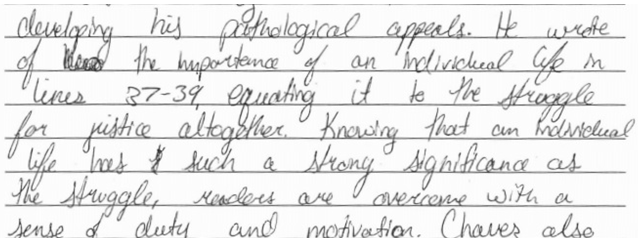 developing his pathological appeals. He wrote
of the importance of an individual life in
lines 37-39, equating it to the struggle
for justice altogether. Knowing that an individual
life has such a strong significance as
the struggle, readers are overcome with a
sense of duty and motivation. Chavez also